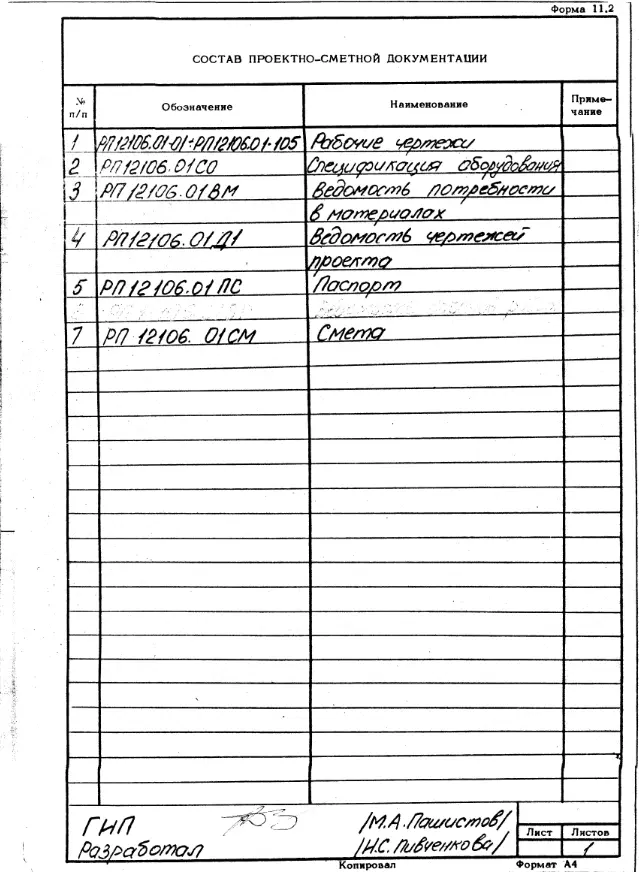 Форма 11.2
СОСТАВ ПРОЕКТНО-СМЕТНОЙ ДОКУМЕНТАЦИИ
№ п/п Обозначение Наименование Приме-
чание
1 РП12106.01-01÷РП12106.01-105 Рабочие чертежи
2 РП12106.01СО Спецификация оборудования
3 РП12106.01ВМ Ведомость потребности
в материалах
4 РП12106.01Д1 Ведомость чертежей
проекта
5 РП12106.01ПС Паспорт
7 РП 12106. 01СМ Смета
ГИП /М.А.Пашистов/
Разработал /Н.С.Пивченкова/
Лист Листов
1
Копировал Формат А4